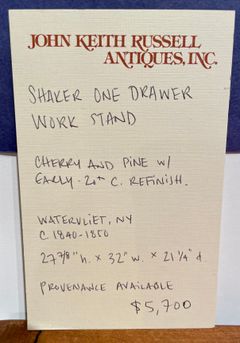 JOHN KEITH RUSSELL
ANTIQUES, INC.
SHAKER ONE DRAWER
WORK STAND
CHERRY AND PINE W/
EARLY 20TH C. REFINISH.
WATERVLIET, NY
C 1840-1850
27 7/8" h. x 32" w. x 21 1/4" d.
PROVENANCE AVAILABLE
$5,700